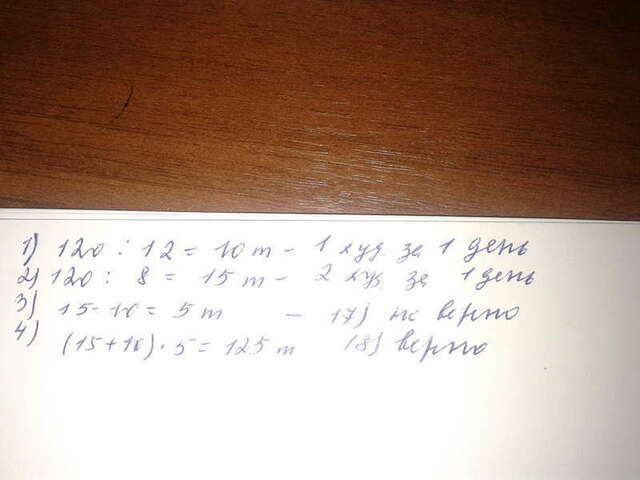 1) 120 : 12 = 10 т - 1 худ. за 1 день
2) 120 : 8 = 15 т - 2 худ. за 1 день
3) 15 - 10 = 5 т - 17) не верно
4) (15 + 10) · 5 = 125 т 18) верно